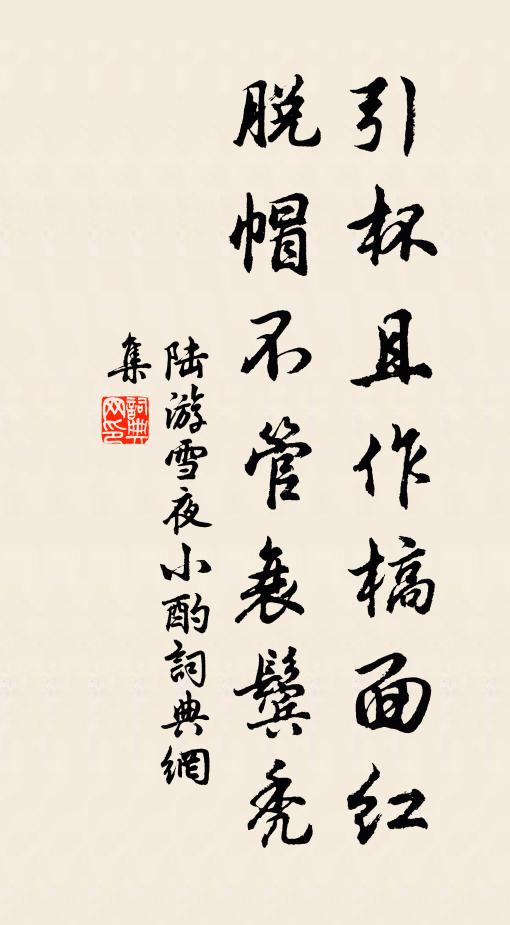 引杯且作槁面红
脱帽不管衰鬓秃
陆游雪夜小酌詞典網
集
詞典網印